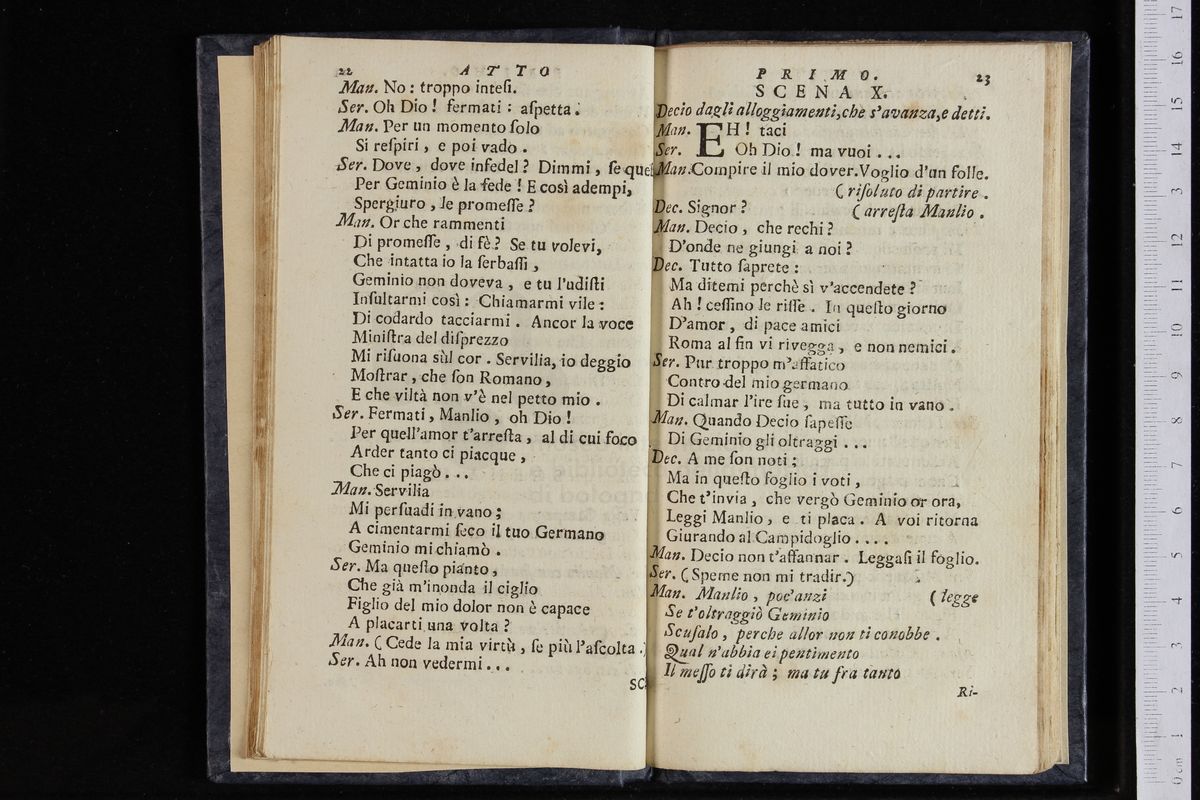 22 ATTO
Man. No: troppo inteſi.
Ser. Oh Dio! fermati: aſpetta.
Man. Per un momento ſolo
Si reſpiri, e poi vado.
Ser. Dove, dove infedel? Dimmi, ſe
Per Geminio è la fede! E così adempi,
Spergiuro, le promeſſe?
Man. Or che rammenti
Di promeſſe, di fè? Se tu volevi,
Che intatta io la ſerbaſſi,
Geminio non doveva, e tu l'udiſti
Inſultarmi così: Chiamarmi vile:
Di codardo tacciarmi. Ancor la voce
Miniſtra del diſprezzo
Mi riſuona sùl cor. Servilia, io deggio
Moſtrar, che ſon Romano,
E che viltà non v'è nel petto mio.
Ser. Fermati, Manlio, oh Dio!
Per quell'amor t'arreſta, al di cui foco
Arder tanto ci piacque,
Che ci piagò...
Man. Servilia
Mi perſuadi in vano;
A cimentarmi ſeco il tuo Germano
Geminio mi chiamò.
Ser. Ma queſto pianto,
Che già m'inonda il ciglio
Figlio del mio dolor non è capace
A placarti una volta?
Man. (Cede la mia virtù, ſe più l'aſcolta.)
Ser. Ah non vedermi...
SC
PRIMO. 23
SCENA X.
Decio dagli alloggiamenti, che s'avanza, e detti.
Man. EH! taci
Ser. Oh Dio! ma vuoi...
Man. Compire il mio dover. Voglio d'un folle.
(riſoluto di partire.
Dec. Signor? (arreſta Manlio.
Man. Decio, che rechi?
D'onde ne giungi a noi?
Dec. Tutto ſaprete:
Ma ditemi perchè sì v'accendete?
Ah! ceſſino le riſſe. In queſto giorno
D'amor, di pace amici
Roma al fin vi rivegga, e non nemici.
Ser. Pur troppo m'affatico
Contro del mio germano
Di calmar l'ire ſue, ma tutto in vano.
Man. Quando Decio ſapeſſe
Di Geminio gli oltraggi...
Dec. A me ſon noti;
Ma in queſto foglio i voti,
Che t'invia, che vergò Geminio or ora,
Leggi Manlio, e ti placa. A voi ritorna
Giurando al Campidoglio....
Man. Decio non t'affannar. Leggaſi il foglio.
Ser. (Speme non mi tradir.)
Man. Manlio, poc'anzi (legge
Se t'oltraggiò Geminio
Scuſalo, perche allor non ti conobbe.
Qual n'abbia ei pentimento
Il meſſo ti dirà; ma tu fra tanto
Ri-